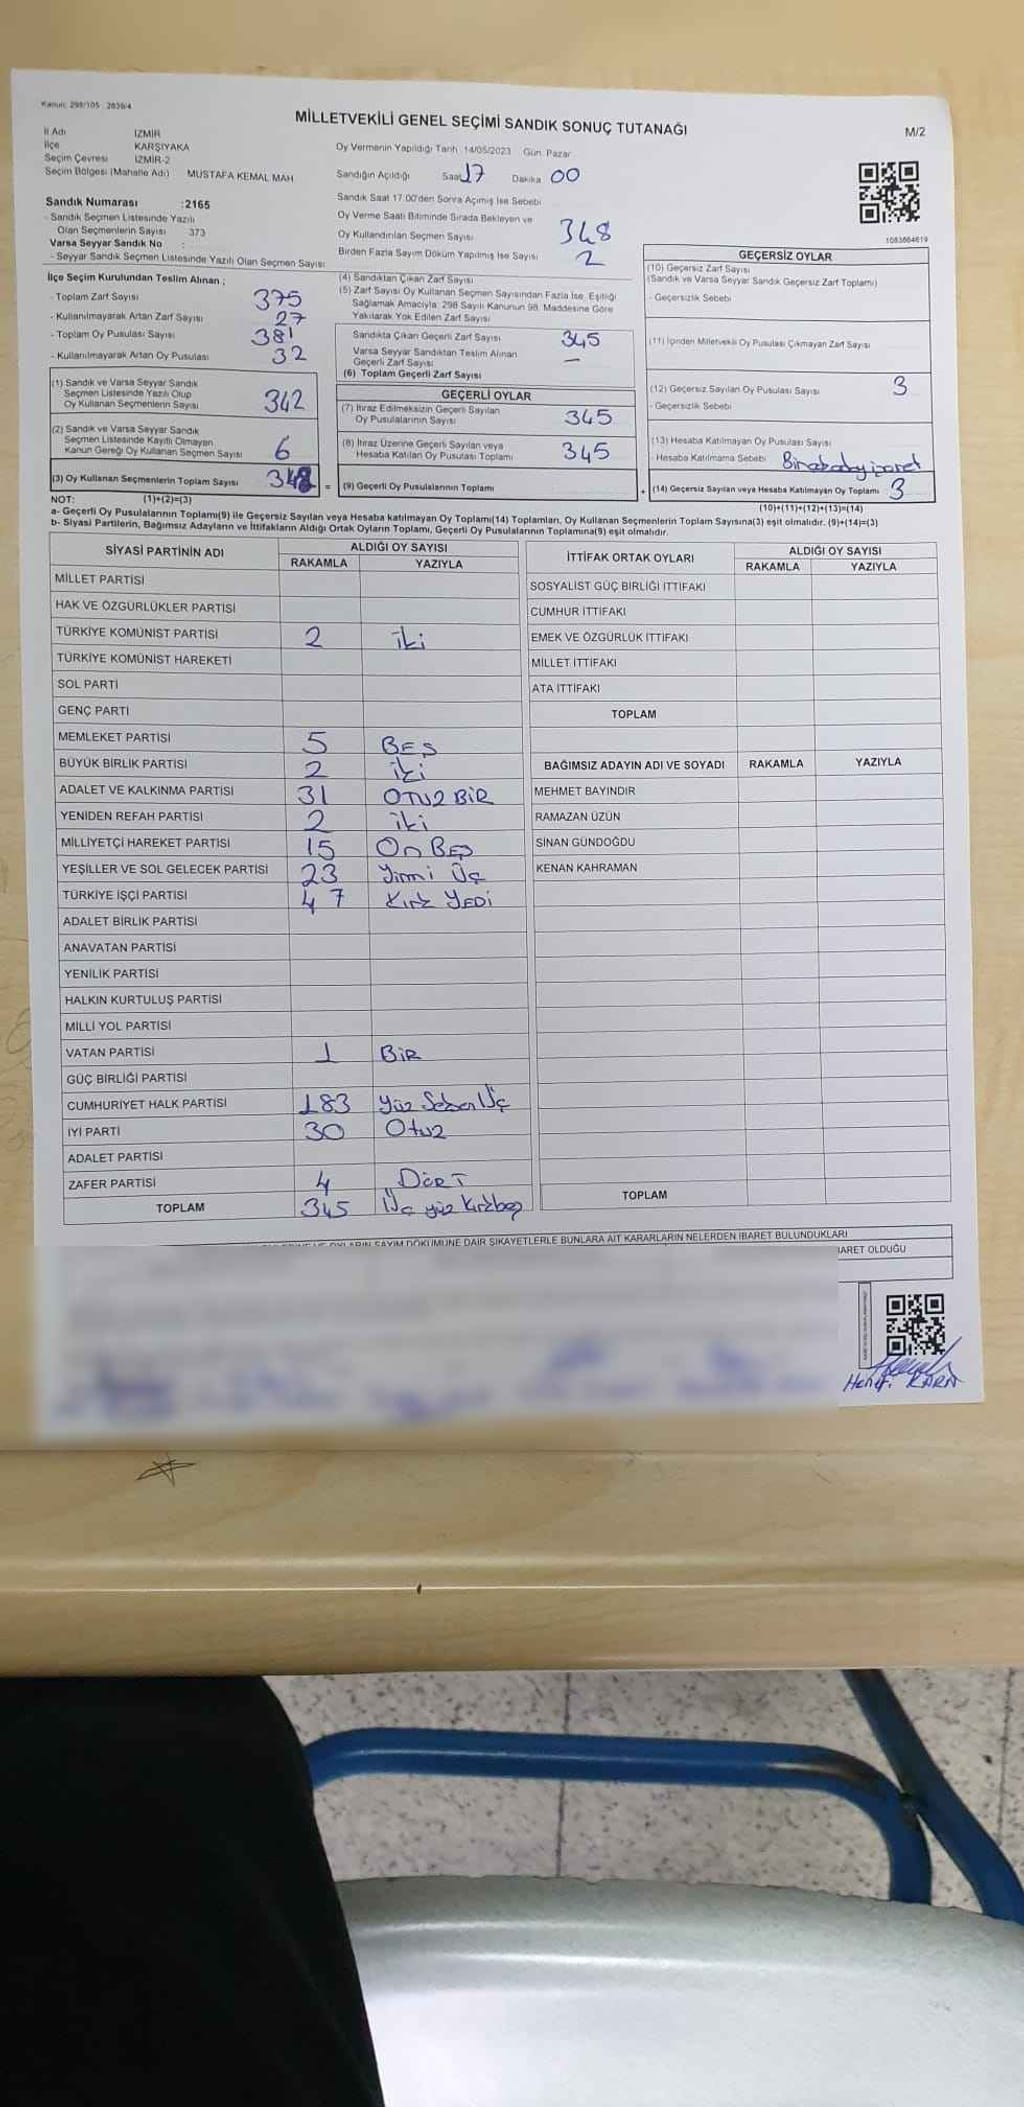 Kanun: 298/105 2839/4
MİLLETVEKİLİ GENEL SEÇİMİ SANDIK SONUÇ TUTANAĞI
M/2
İl Adı İZMİR
İlçe KARŞIYAKA
Seçim Çevresi İZMİR-2
Seçim Bölgesi (Mahalle Adı) MUSTAFA KEMAL MAH
Oy Vermenin Yapıldığı Tarih 14/05/2023 Gün: Pazar
Sandığın Açıldığı Saat 17 Dakika 00
Sandık Saat 17:00'den Sonra Açımış İse Sebebi
Sandık Numarası :2165
- Sandık Seçmen Listesinde Yazılı
Olan Seçmenlerin Sayısı 373
Varsa Seyyar Sandık No :
- Seyyar Sandık Seçmen Listesinde Yazılı Olan Seçmen Sayısı:
Oy Verme Saati Bitiminde Sırada Bekleyen ve
Oy Kullandırılan Seçmen Sayısı 348
Birden Fazla Sayım Döküm Yapılmış İse Sayısı 2
1083664619
İlçe Seçim Kurulundan Teslim Alınan ;
- Toplam Zarf Sayısı 375
- Kullanılmayarak Artan Zarf Sayısı 27
- Toplam Oy Pusulası Sayısı 381
- Kullanılmayarak Artan Oy Pusulası 32
(1) Sandık ve Varsa Seyyar Sandık
Seçmen Listesinde Yazılı Olup
Oy Kullanan Seçmenlerin Sayısı 342
(2) Sandık ve Varsa Seyyar Sandık
Seçmen Listesinde Kayıtlı Olmayan
Kanun Gereği Oy Kullanan Seçmen Sayısı 6
(3) Oy Kullanan Seçmenlerin Toplam Sayısı 348 =
(4) Sandıktan Çıkan Zarf Sayısı
(5) Zarf Sayısı Oy Kullanan Seçmen Sayısından Fazla İse, Eşitliği
Sağlamak Amacıyla, 298 Sayılı Kanunun 98. Maddesine Göre
Yakılarak Yok Edilen Zarf Sayısı
Sandıkta Çıkan Geçerli Zarf Sayısı 345
Varsa Seyyar Sandıktan Teslim Alınan
Geçerli Zarf Sayısı —
(6) Toplam Geçerli Zarf Sayısı
GEÇERLİ OYLAR
(7) İtiraz Edilmeksizin Geçerli Sayılan
Oy Pusulalarının Sayısı 345
(8) İtiraz Üzerine Geçerli Sayılan veya
Hesaba Katılan Oy Pusulası Toplamı 345
(9) Geçerli Oy Pusulalarının Toplamı +
GEÇERSİZ OYLAR
(10) Geçersiz Zarf Sayısı
(Sandık ve Varsa Seyyar Sandık Geçersiz Zarf Toplamı)
- Geçersizlik Sebebi
(11) İçinden Milletvekili Oy Pusulası Çıkmayan Zarf Sayısı
(12) Geçersiz Sayılan Oy Pusulası Sayısı 3
- Geçersizlik Sebebi
(13) Hesaba Katılmayan Oy Pusulası Sayısı
- Hesaba Katılmama Sebebi
(14) Geçersiz Sayılan veya Hesaba Katılmayan Oy Toplamı 3
NOT: (1)+(2)=(3)
(10)+(11)+(12)+(13)=(14)
a- Geçerli Oy Pusulalarının Toplamı(9) ile Geçersiz Sayılan veya Hesaba katılmayan Oy Toplamı(14) Toplamları, Oy Kullanan Seçmenlerin Toplam Sayısına(3) eşit olmalıdır. (9)+(14)=(3)
b- Siyasi Partilerin, Bağımsız Adayların ve İttifakların Aldığı Ortak Oyların Toplamı, Geçerli Oy Pusulalarının Toplamına(9) eşit olmalıdır.
SİYASİ PARTİNİN ADI ALDIĞI OY SAYISI
RAKAMLA YAZIYLA
MİLLET PARTİSİ
HAK VE ÖZGÜRLÜKLER PARTİSİ
TÜRKİYE KOMÜNİST PARTİSİ 2 iki
TÜRKİYE KOMÜNİST HAREKETİ
SOL PARTİ
GENÇ PARTİ
MEMLEKET PARTİSİ 5 BEŞ
BÜYÜK BİRLİK PARTİSİ 2 iki
ADALET VE KALKINMA PARTİSİ 31 OTUZ BİR
YENİDEN REFAH PARTİSİ 2 iki
MİLLİYETÇİ HAREKET PARTİSİ 15 On BEŞ
YEŞİLLER VE SOL GELECEK PARTİSİ 23 Yirmi Üç
TÜRKİYE İŞÇİ PARTİSİ 47 Kırk YEDİ
ADALET BİRLİK PARTİSİ
ANAVATAN PARTİSİ
YENİLİK PARTİSİ
HALKIN KURTULUŞ PARTİSİ
MİLLİ YOL PARTİSİ
VATAN PARTİSİ 1 BİR
GÜÇ BİRLİĞİ PARTİSİ
CUMHURİYET HALK PARTİSİ 183 Yüz Seksen Üç
İYİ PARTİ 30 Otuz
ADALET PARTİSİ
ZAFER PARTİSİ 4 DÖRT
TOPLAM 345 Üç yüz Kırkbeş
İTTİFAK ORTAK OYLARI ALDIĞI OY SAYISI
RAKAMLA YAZIYLA
SOSYALİST GÜÇ BİRLİĞİ İTTİFAKI
CUMHUR İTTİFAKI
EMEK VE ÖZGÜRLÜK İTTİFAKI
MİLLET İTTİFAKI
ATA İTTİFAKI
TOPLAM
BAĞIMSIZ ADAYIN ADI VE SOYADI RAKAMLA YAZIYLA
MEHMET BAYINDIR
RAMAZAN ÜZÜN
SİNAN GÜNDOĞDU
KENAN KAHRAMAN
TOPLAM
OYLARIN SAYIM DÖKÜMÜNE DAİR ŞİKAYETLERLE BUNLARA AİT KARARLARIN NELERDEN İBARET BULUNDUKLARI
İBARET OLDUĞU
KARA